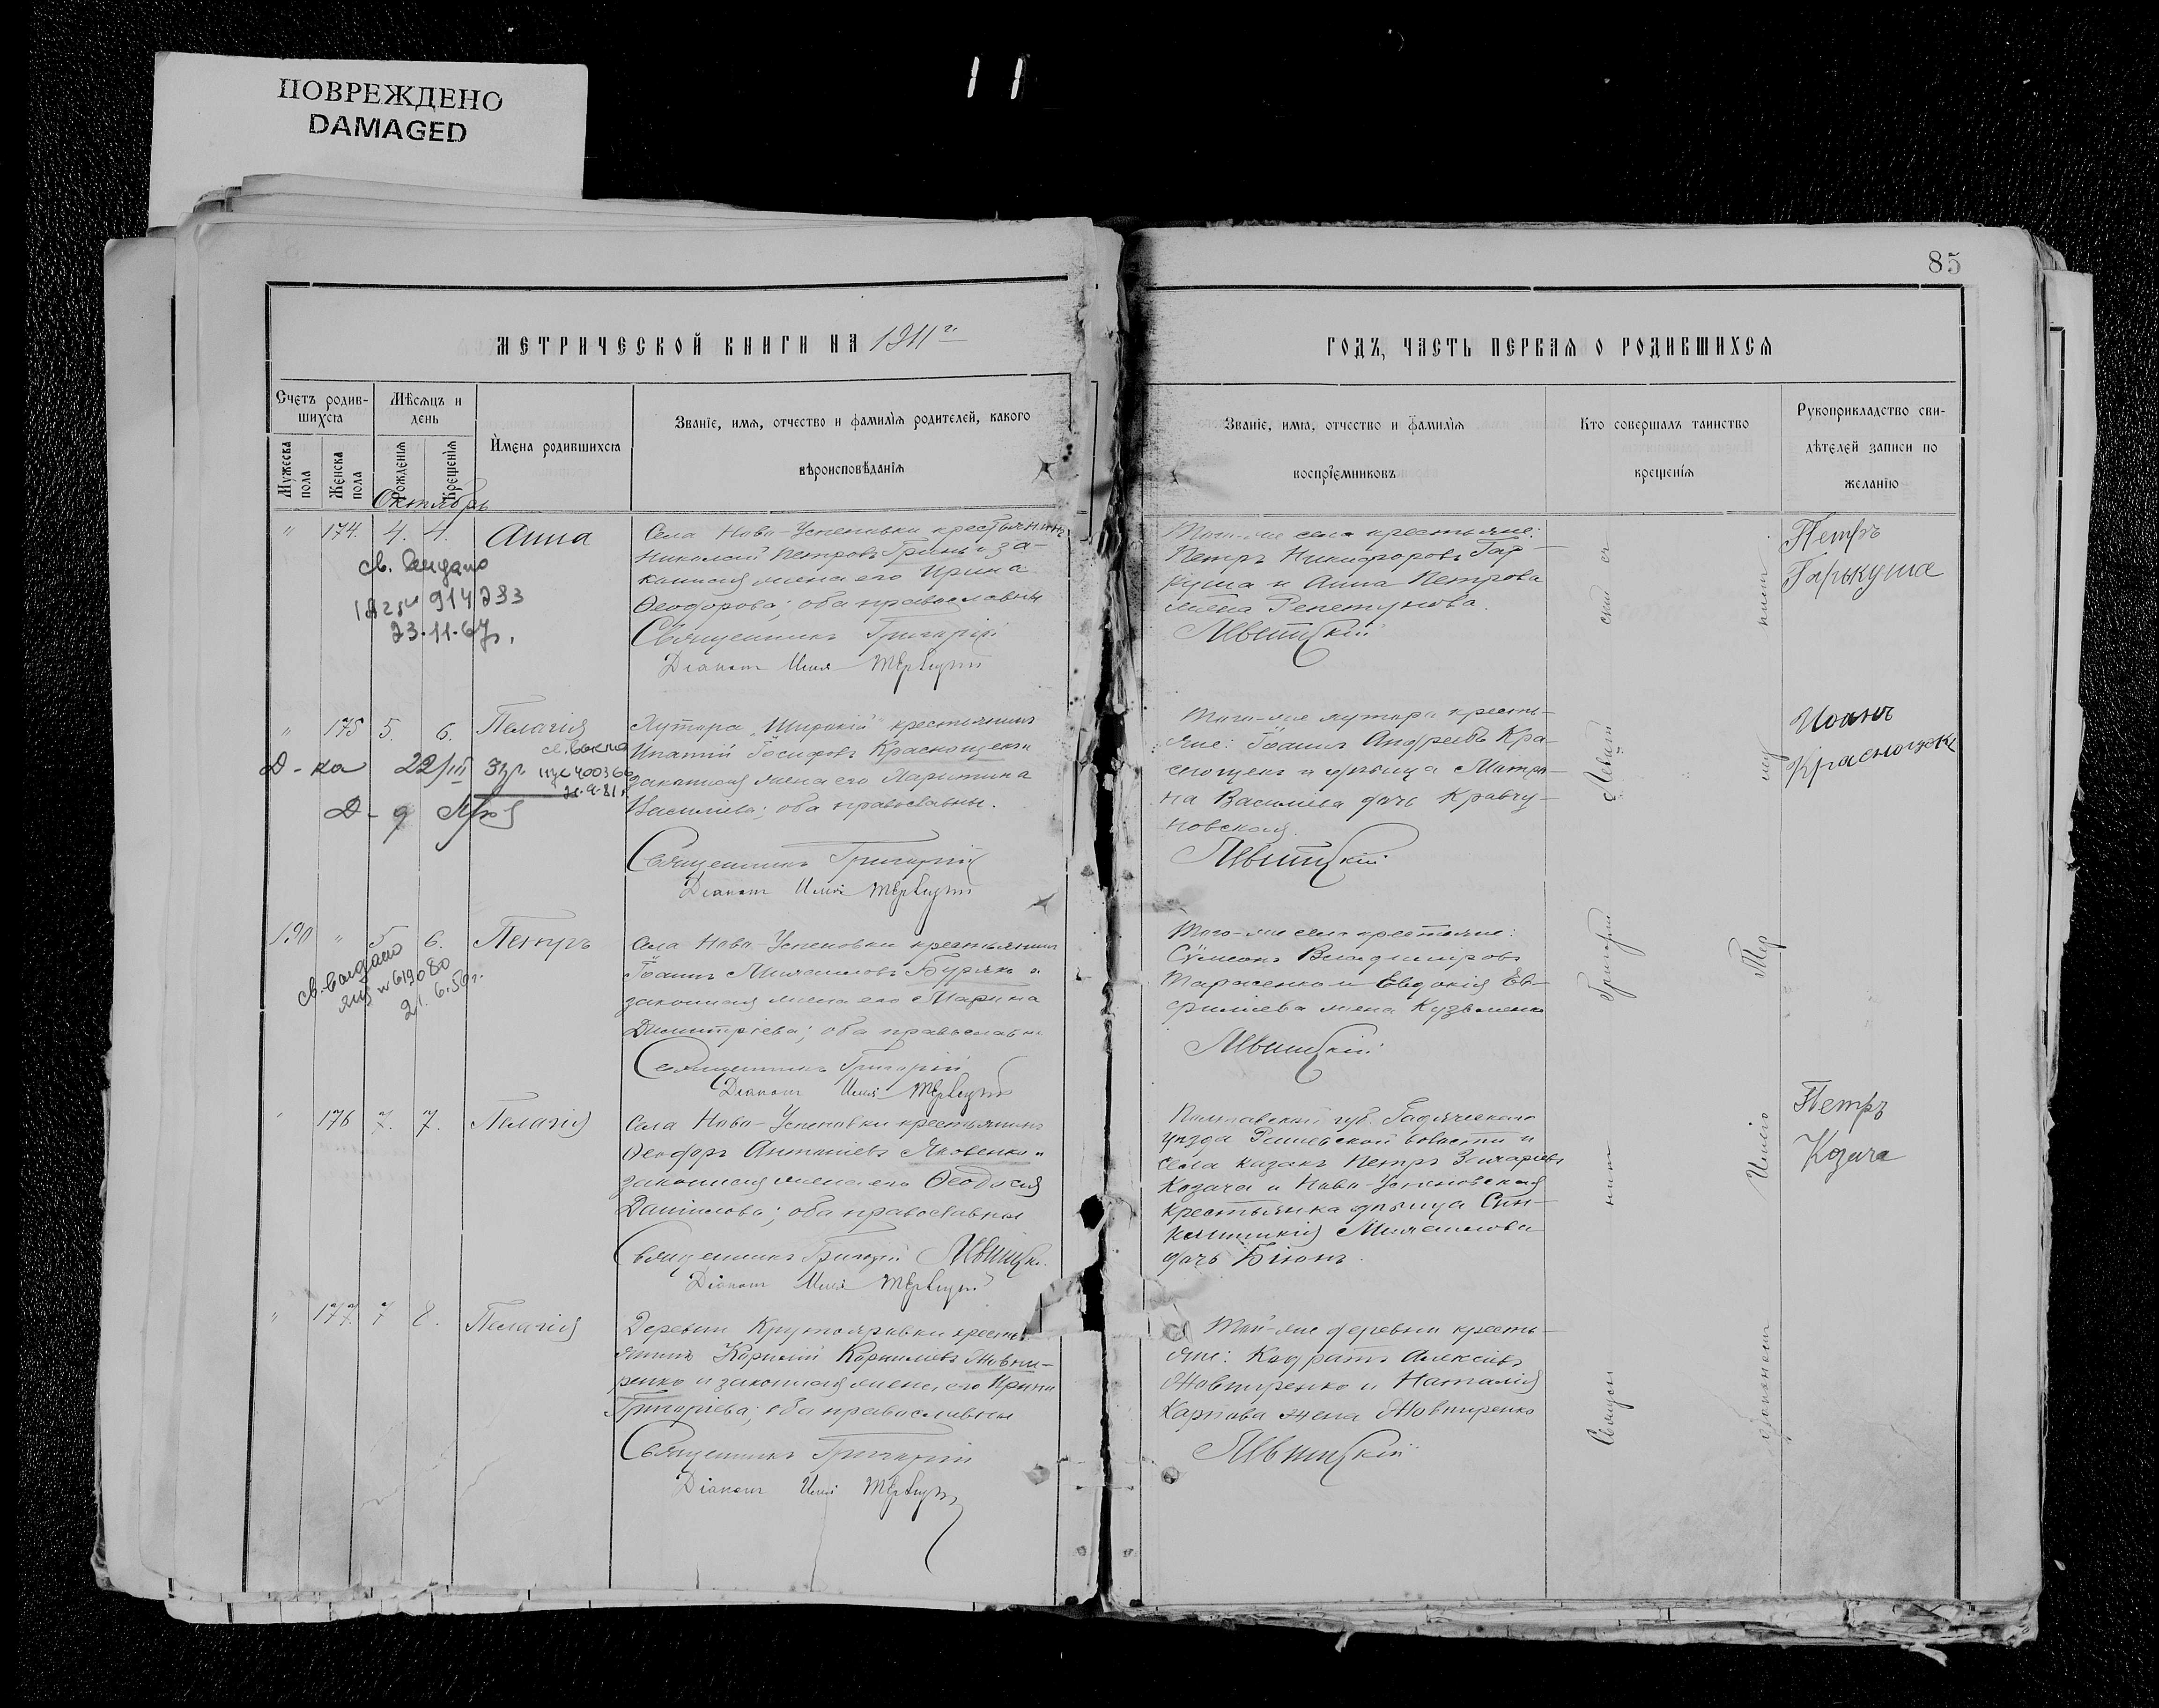 ПОВРЕЖДЕНО
DAMAGED
11
85
МЕТРИЧЕСКОЙ КНИГИ НА 1911 г.
ГОДЪ, ЧАСТЬ ПЕРВАЯ О РОДИВШИХСЯ
Счетъ родившихся
Мужеска пола
Женска пола
Мѣсяцъ и день
Рожденія
Крещенія
Имена родившихся
Званіе, имя, отчество и фамилія родителей, какого
вѣроисповѣданія
Званіе, имя, отчество и фамилія
воспріемниковъ
Кто совершалъ таинство
крещенія
Рукоприкладство сви-
дѣтелей записи по
желанію
Октябрь
" 174. 4. 4. Анна
Села Ново-Успеновки крестьянинъ
Николай Петровъ Гринь и за-
конная жена его Ирина
Ѳеодорова; оба православны
Священникъ Григорій
Діаконъ Илія
Того-же села крестьяне:
Петръ Никифоровъ Гар-
куша и Анна Петрова
жена Репетунова.
Левитскій
Петръ
Гарькуша
914283
23.11.67г.
" 175 5. 6. Пелагія
Хутора "Широкій" крестьянинъ
Ипатій Іосифовъ Краснощекъ и
законная жена его Харитина
Василіева; оба православны.
Священникъ Григорій
Діаконъ Илія
Того-же хутора кресть-
яне: Іоаннъ Андреевъ Кра-
снощекъ и дѣвица Матро-
на Василіева дочь Кравчу-
новская.
Левитскій
Иоанъ
Краснощокъ
Д-ка 22/III
400366
21.9.81г.
190 " 5 6. Петръ
Села Ново-Успеновки крестьянинъ
Іоаннъ Михаиловъ Буряко и
законная жена его Марина
Димитріева; оба православны
Священникъ Григорій
Діаконъ Илія
Того-же села крестьяне:
Сѵмеонъ Владиміровъ
Тарасенко и Евдокія Ев-
фиміева жена Кузьменко
Левитскій
619080
21.6.56г.
" 176 7. 7. Пелагія
Села Ново-Успеновки крестьянинъ
Ѳеодоръ Антоніевъ Яковенко и
законная жена его Ѳеодосія
Даніилова; оба православны
Священникъ Григорій Левитскій
Діаконъ Илія
Полтавской губ. Гадячскаго
уѣзда Рашевской волости и
села казакъ Петръ Захаріевъ
Козача и Ново-Успеновская
крестьянка дѣвица Син-
клитикія Михаилова
дочь Біюнъ.
Петръ
Козача
" 177. 7 8. Пелагія
Деревни Крутояровки кресть-
янинъ Корнилій Корниліевъ Жовни-
ренко и законная жена его Ирина
Григоріева; оба православны
Священникъ Григорій
Діаконъ Илія
Той-же деревни кресть-
яне: Кодратъ Алексіевъ
Жовниренко и Наталія
Карпова жена Жовниренко
Левитскій
Священникъ Григорій Левитскій съ
діакономъ Иліею